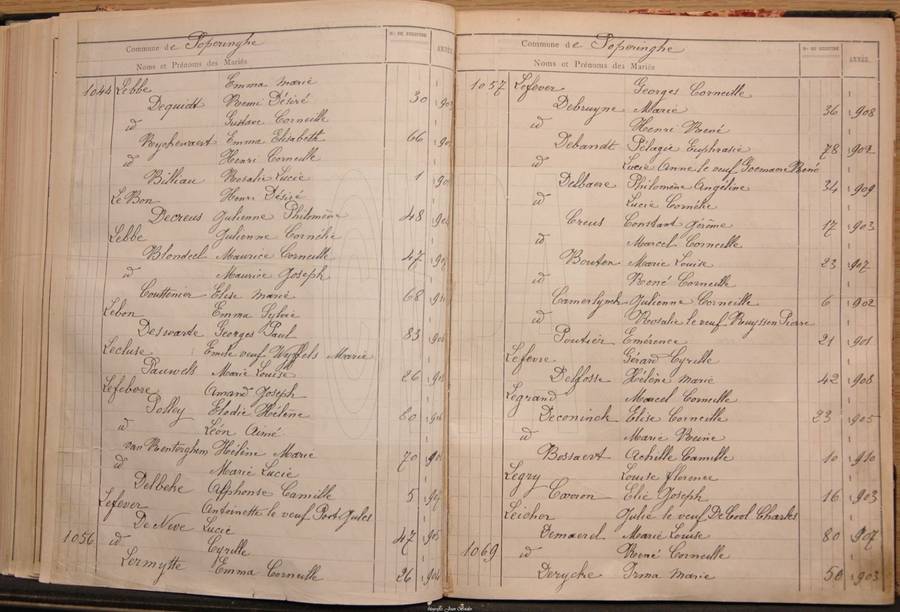 Commune de Poperinghe
Nos DE REGISTRE
ANNÉE
Noms et Prénoms des Mariés
1044 Lebbe Emma Marie
Dequidt Remi Désiré 30 90
id Gustave Corneille
Ryckewaert Emma Elisabeth 66 90
id Henri Corneille
Billiau Rosalie Lucie 1 90
Le Bon Henri Désiré
Decreus Julienne Philomène 48 90
Lebbe Julienne Cornélie
Blondeel Maurice Corneille 47 90
id Maurice Joseph
Couttenier Elise Marie 68 91
Lebon Emma Sylvie
Deswarte Georges Paul 83 90
Lecluse Emile veuf Wyffels Marie
Pauwels Marie Louise 26 90
Lefebvre Amand Joseph
Polley Elodie Hélène 80 90
id Léon Aimé
van Renterghem Hélène Marie 70 90
id Marie Lucie
Delbeke Alphonse Camille 5 907
Lefever Antoinette le veuf Port Jules
De Neve Lucie 47 905
1056 id Cyrille
Lermytte Emma Corneille 26 904
Commune de Poperinghe
Nos DE REGISTRE
ANNÉE
Noms et Prénoms des Mariés
1057 Lefever Georges Corneille
Debruyne Marie 36 908
id Henri René
Debandt Pélagie Euphrasie 78 902
id Lucie Anne le veuf Goemaere René
Delbaere Philomène Angéline 34 909
id Lucie Cornélie
Creus Constant Jérôme 17 903
id Marcel Corneille
Bouton Marie Louise 23 907
id René Corneille
Camerlynck Julienne Corneille 6 902
id Rosalie le veuf Ruyssen Pierre
Poutier Emérence 21 901
Lefevre Gérard Cyrille
Delfosse Hélène Marie 42 908
Legrand Marcel Corneille
Deconinck Elise Corneille 23 905
id Marie Reine
Bossaert Achille Camille 10 910
Legry Louise Florence
Caron Elie Joseph 16 903
Leicher Julie le veuf DeCool Charles
Demaerel Marie Louise 80 907
1069 id René Corneille
Derycke Irma Marie 50 903